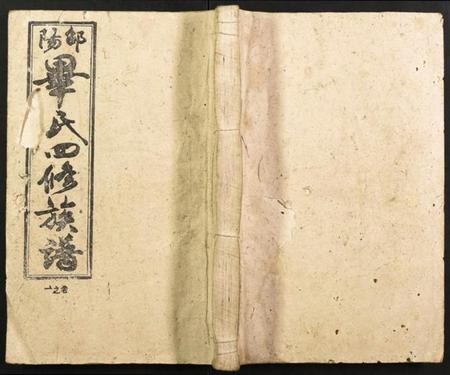 邵陽
畢氏四修族譜
卷之一